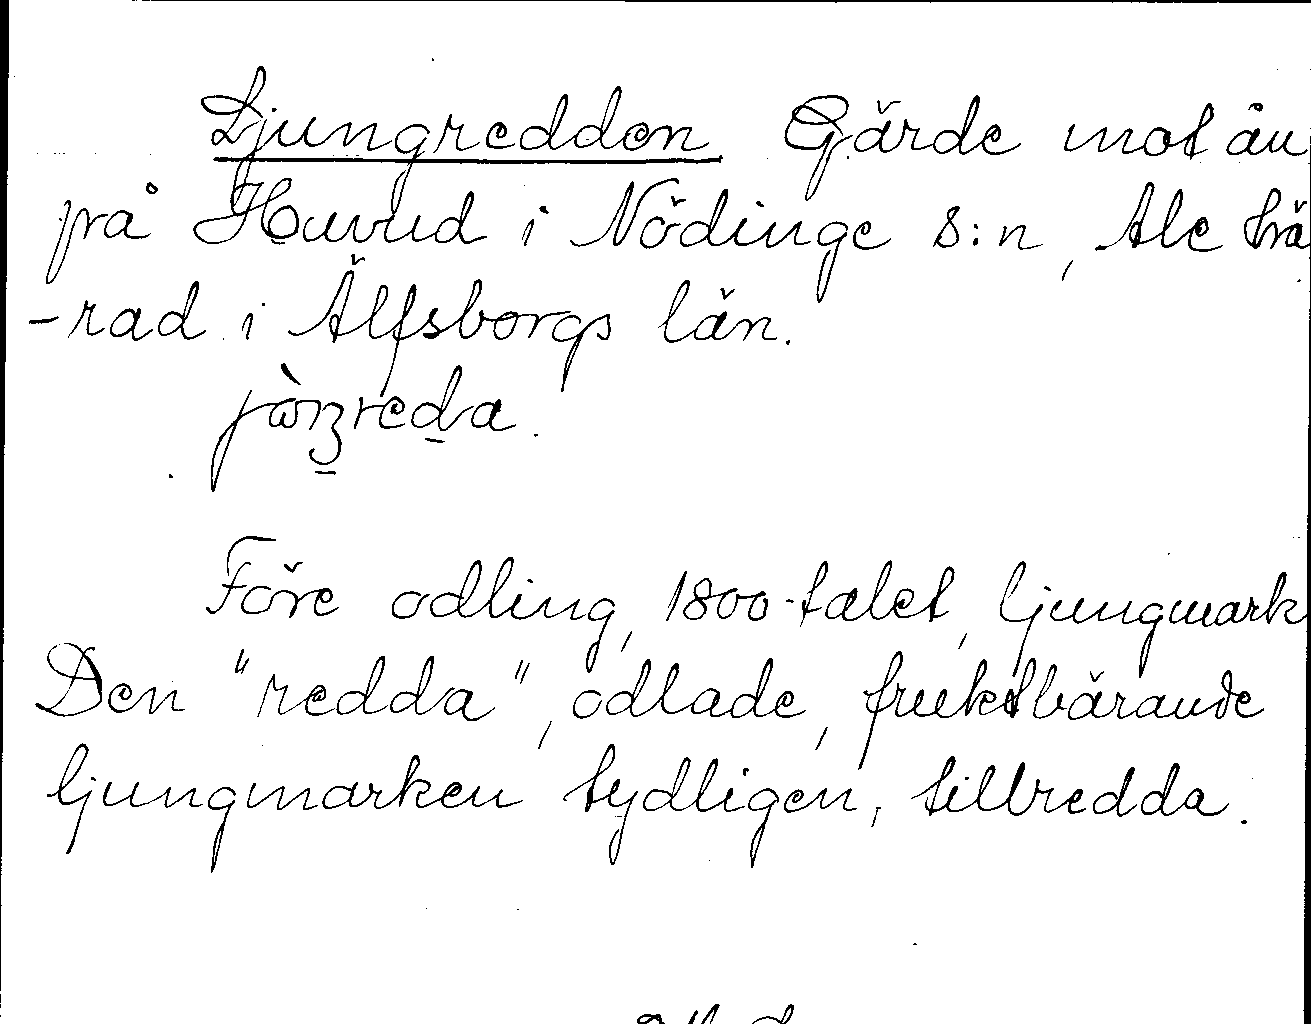 Ljungredden Gärde mot ån
på Huvud i Nödinge s:n, Ale hä
-rad i Älfsborgs län.
Före odling, 1800-talet, ljungmark
Den "redda", odlade, fruktbärande
ljungmarken tydligen, tillredda.